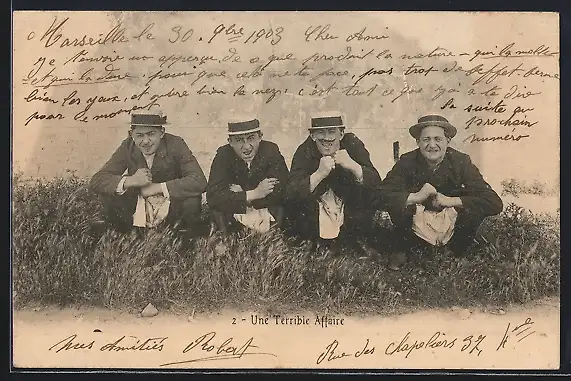 Marseille le 30. 9bre 1903 Cher Ami
Je t'envoie un apperçu de ce que produit la nature - qui la molle
et qui la dure, pour que cela ne te fasse, pas trop d'effet ferme
bien les yeux, et ouvre bien le nez; c'est tout ce que j'ai à te dire
pour le moment
la suite au
prochain
numéro
2 - Une Terrible Affaire
Mes Amitiés Robert Rue des Chapeliers 37